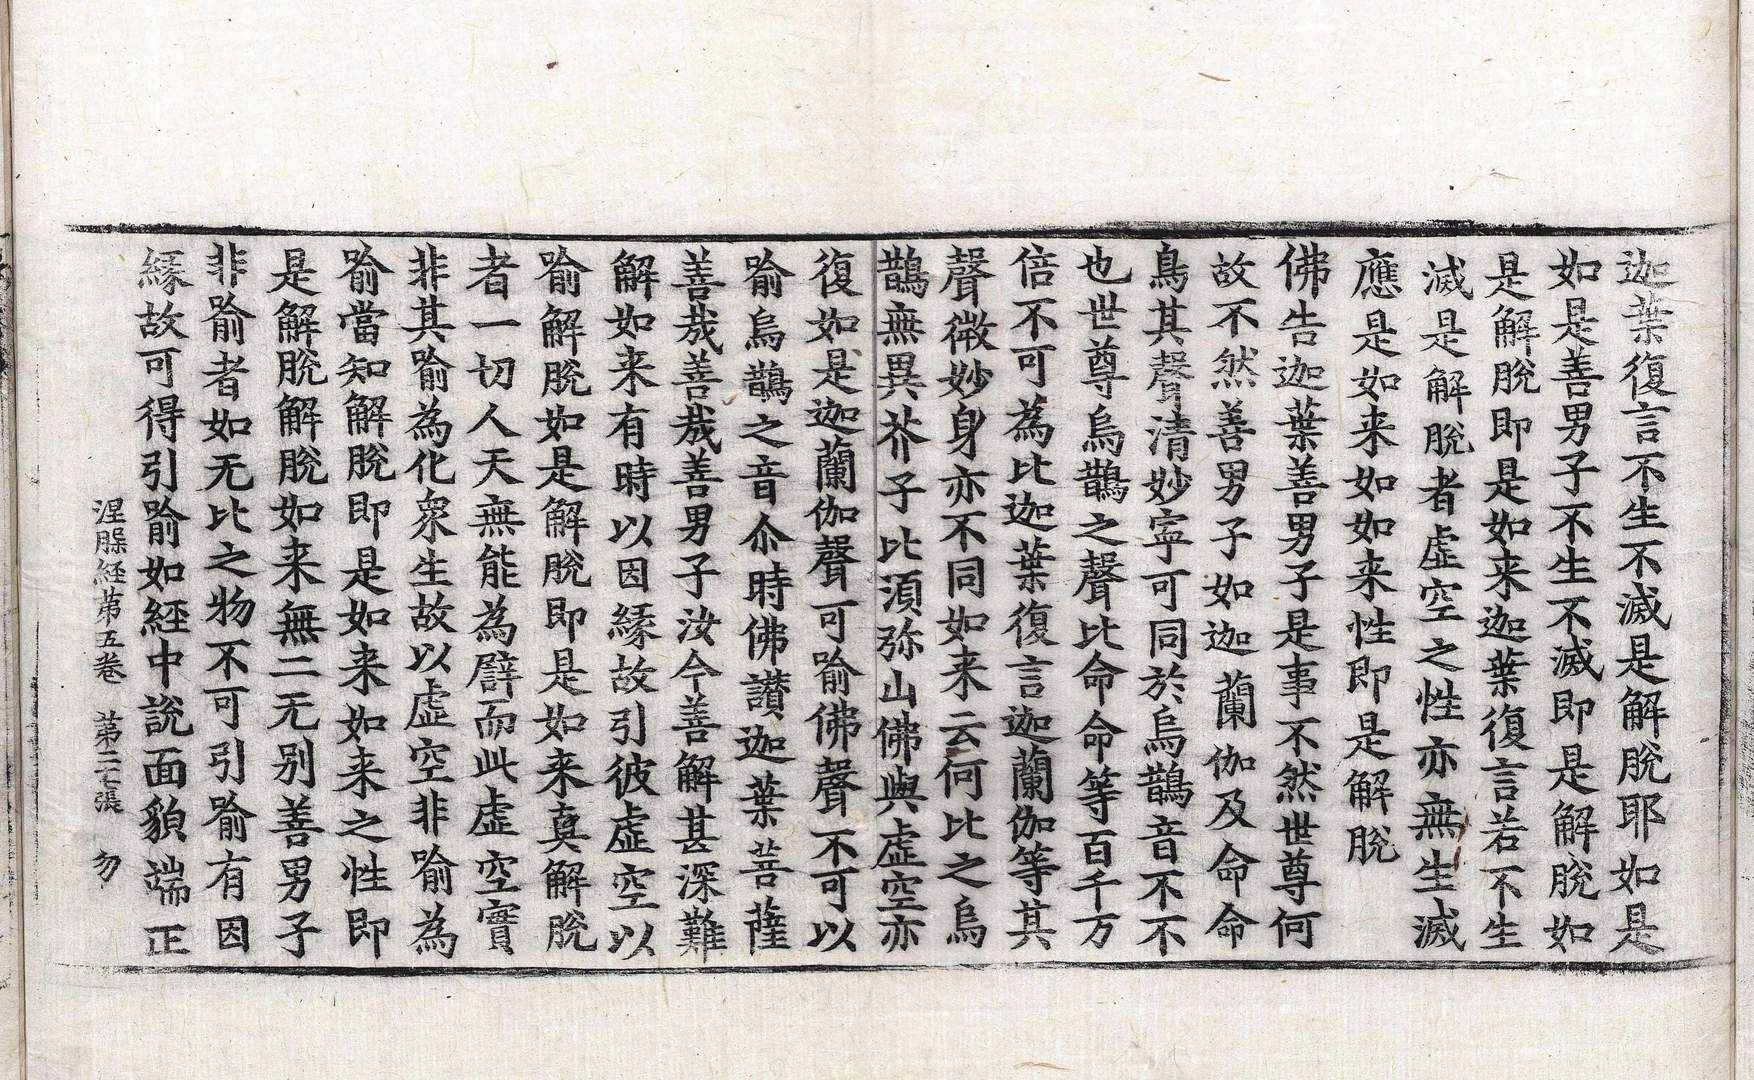 迦葉復言不生不滅是解脫耶如是
如是善男子不生不滅即是解脫如
是解脫即是如来迦葉復言若不生
滅是解脫者虛空之性亦無生滅
應是如来如如来性即是解脫
佛告迦葉善男子是事不然世尊何
故不然善男子如迦蘭伽及命命
鳥其聲清妙寧可同於烏鵲音不不
也世尊烏鵲之聲比命命等百千万
倍不可為比迦葉復言迦蘭伽等其
聲微妙身亦不同如来云何比之烏
鵲無異芥子比須弥山佛與虛空亦
復如是迦蘭伽聲可喻佛聲不可以
喻烏鵲之音尒時佛讃迦葉菩薩
善哉善哉善男子汝今善解甚深難
解如来有時以因緣故引彼虛空以
喻解脫如是解脫即是如来真解脫
者一切人天無能為譬而此虛空實
非其喻為化衆生故以虛空非喻為
喻當知解脫即是如来如来之性即
是解脫解脫如来無二无别善男子
非喻者如无比之物不可引喻有因
緣故可得引喻如經中說面貌端正
涅槃経第五卷　第二七張　勿